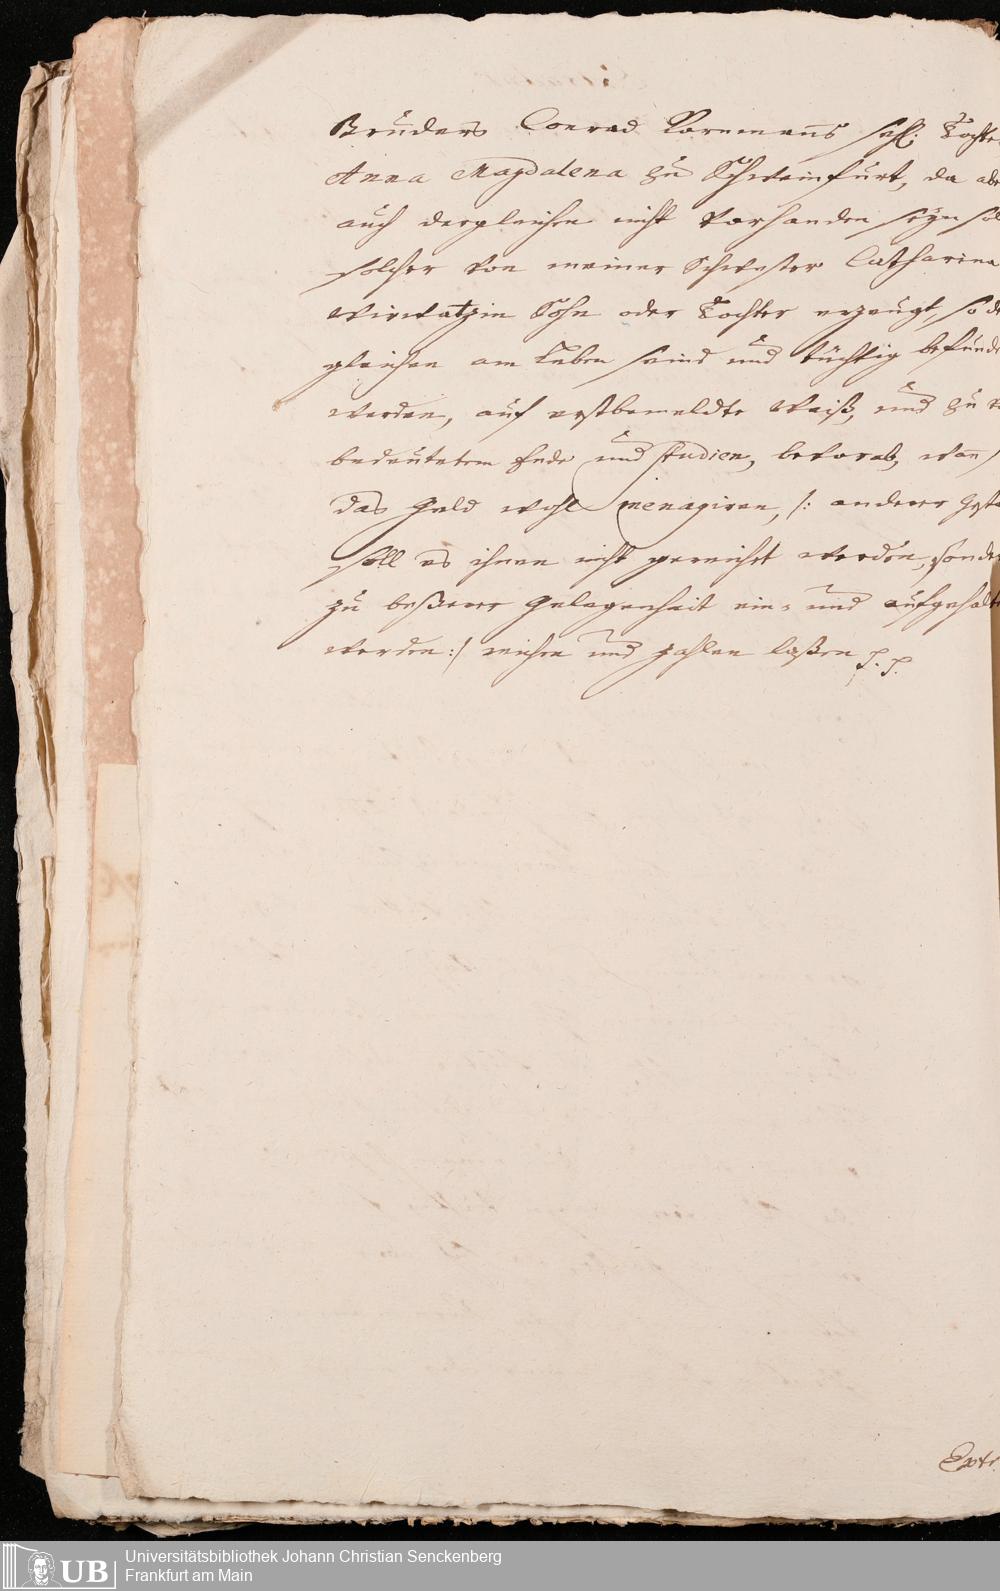 Bruders Conrad Kornmanns sehl. Tochter
Anna Magdalena zu Schweinfurt, da aber
auch dergleichen nicht vorhanden seyn sol
solcher von meiner Schwester Catharina
Sohn oder Tochter erzeugt, so de
gleichen am Leben seind und tüchtig befunde
werden, auf erstbemeldte Weiß, und zu
bedeutetem Ende und studien, bevorab, wan
das Geld wohl menagiren, /: anderer Gesta
soll es ihnen nicht gereichet werden, sonder
zu beßerer Gelegenheit ein- und aufgehalte
werden :/ reichen und zahlen laßen p. p.
Extr
UB
Universitätsbibliothek Johann Christian Senckenberg
Frankfurt am Main